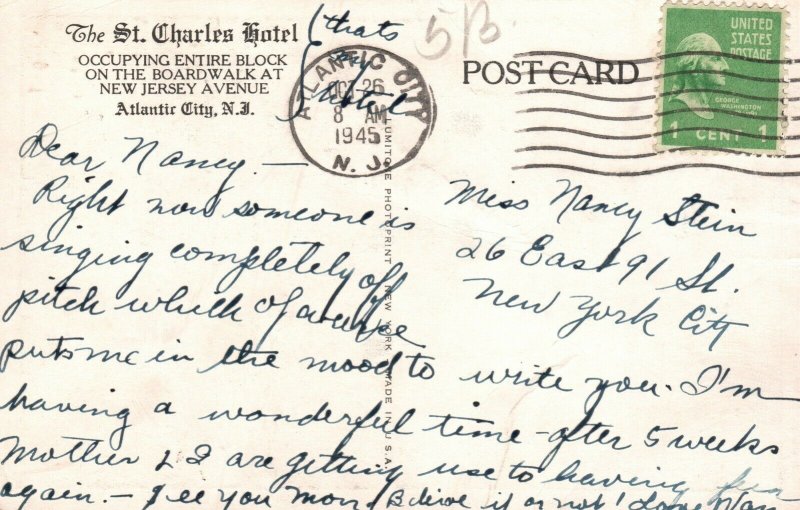 The St. Charles Hotel
OCCUPYING ENTIRE BLOCK
ON THE BOARDWALK AT
NEW JERSEY AVENUE
Atlantic City, N.J.
(thats
my
hotel
5B
ATLANTIC CITY
26
8 AM
1945
N. J.
POST CARD
UNITED
STATES
POSTAGE
GEORGE
WASHINGTON
1 CENT 1
LUMITONE PHOTOPRINT NEW YORK MADE IN U.S.A.
Dear Nancy, —
Right now someone is
singing completely off
pitch which of course
puts me in the mood to write you. I'm
having a wonderful time - after 5 weeks
Mother & I are getting use to having fun
again. - See you Mon. Believe it or not! Love
Miss Nancy Stein
26 East 91 St.
New York City